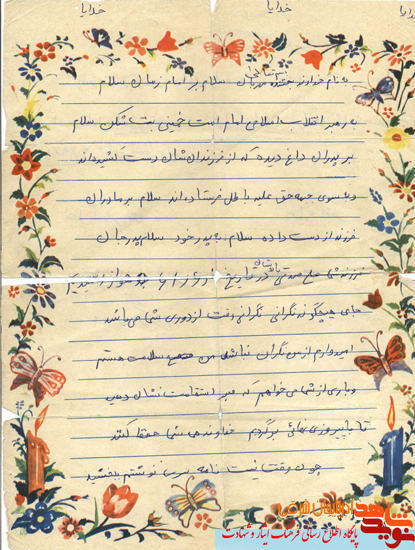 خدایا خدایا
به نام خداوند بخشنده مهربان سلام بر امام زمان سلام
به رهبر انقلاب اسلامی امام امت خمینی بت شکن سلام
بر پدران داغ دیده که از فرزندان شان دست کشیده‌اند
و به سوی جبهه حق علیه باطل فرستاده‌اند سلام بر مادران
فرزند از دست داده سلام به پدر خود سلام پدر جان
فرزند شما در تاریخ
جای هیچگونه نگرانی نگرانی نیست از دوری شما می‌باشد
امیدوارم از من نگران نباشید من صحیح سلامت هستم
و باری از شما می‌خواهم که صبر استقامت نشان دهید
تا با پیروزی نهائی برگردیم خداوند می شما حفظ کند
چون وقت نیست نامه نوشتم ببخشید
نوید شاهد
پایگاه اطلاع رسانی فرهنگ ایثار و شهادت